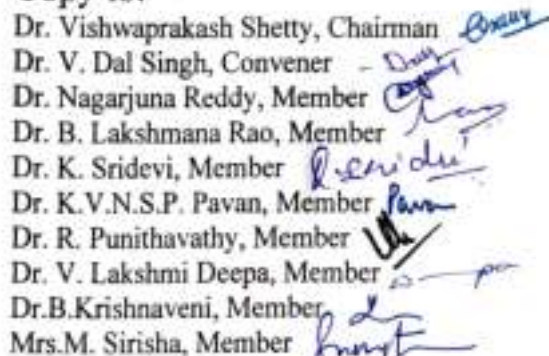 Copy to:
Dr. Vishwaprakash Shetty, Chairman
Dr. V. Dal Singh, Convener -
Dr. Nagarjuna Reddy, Member
Dr. B. Lakshmana Rao, Member
Dr. K. Sridevi, Member
Dr. K.V.N.S.P. Pavan, Member Pavan
Dr. R. Punithavathy, Member
Dr. V. Lakshmi Deepa, Member
Dr.B.Krishnaveni, Member
Mrs.M. Sirisha, Member